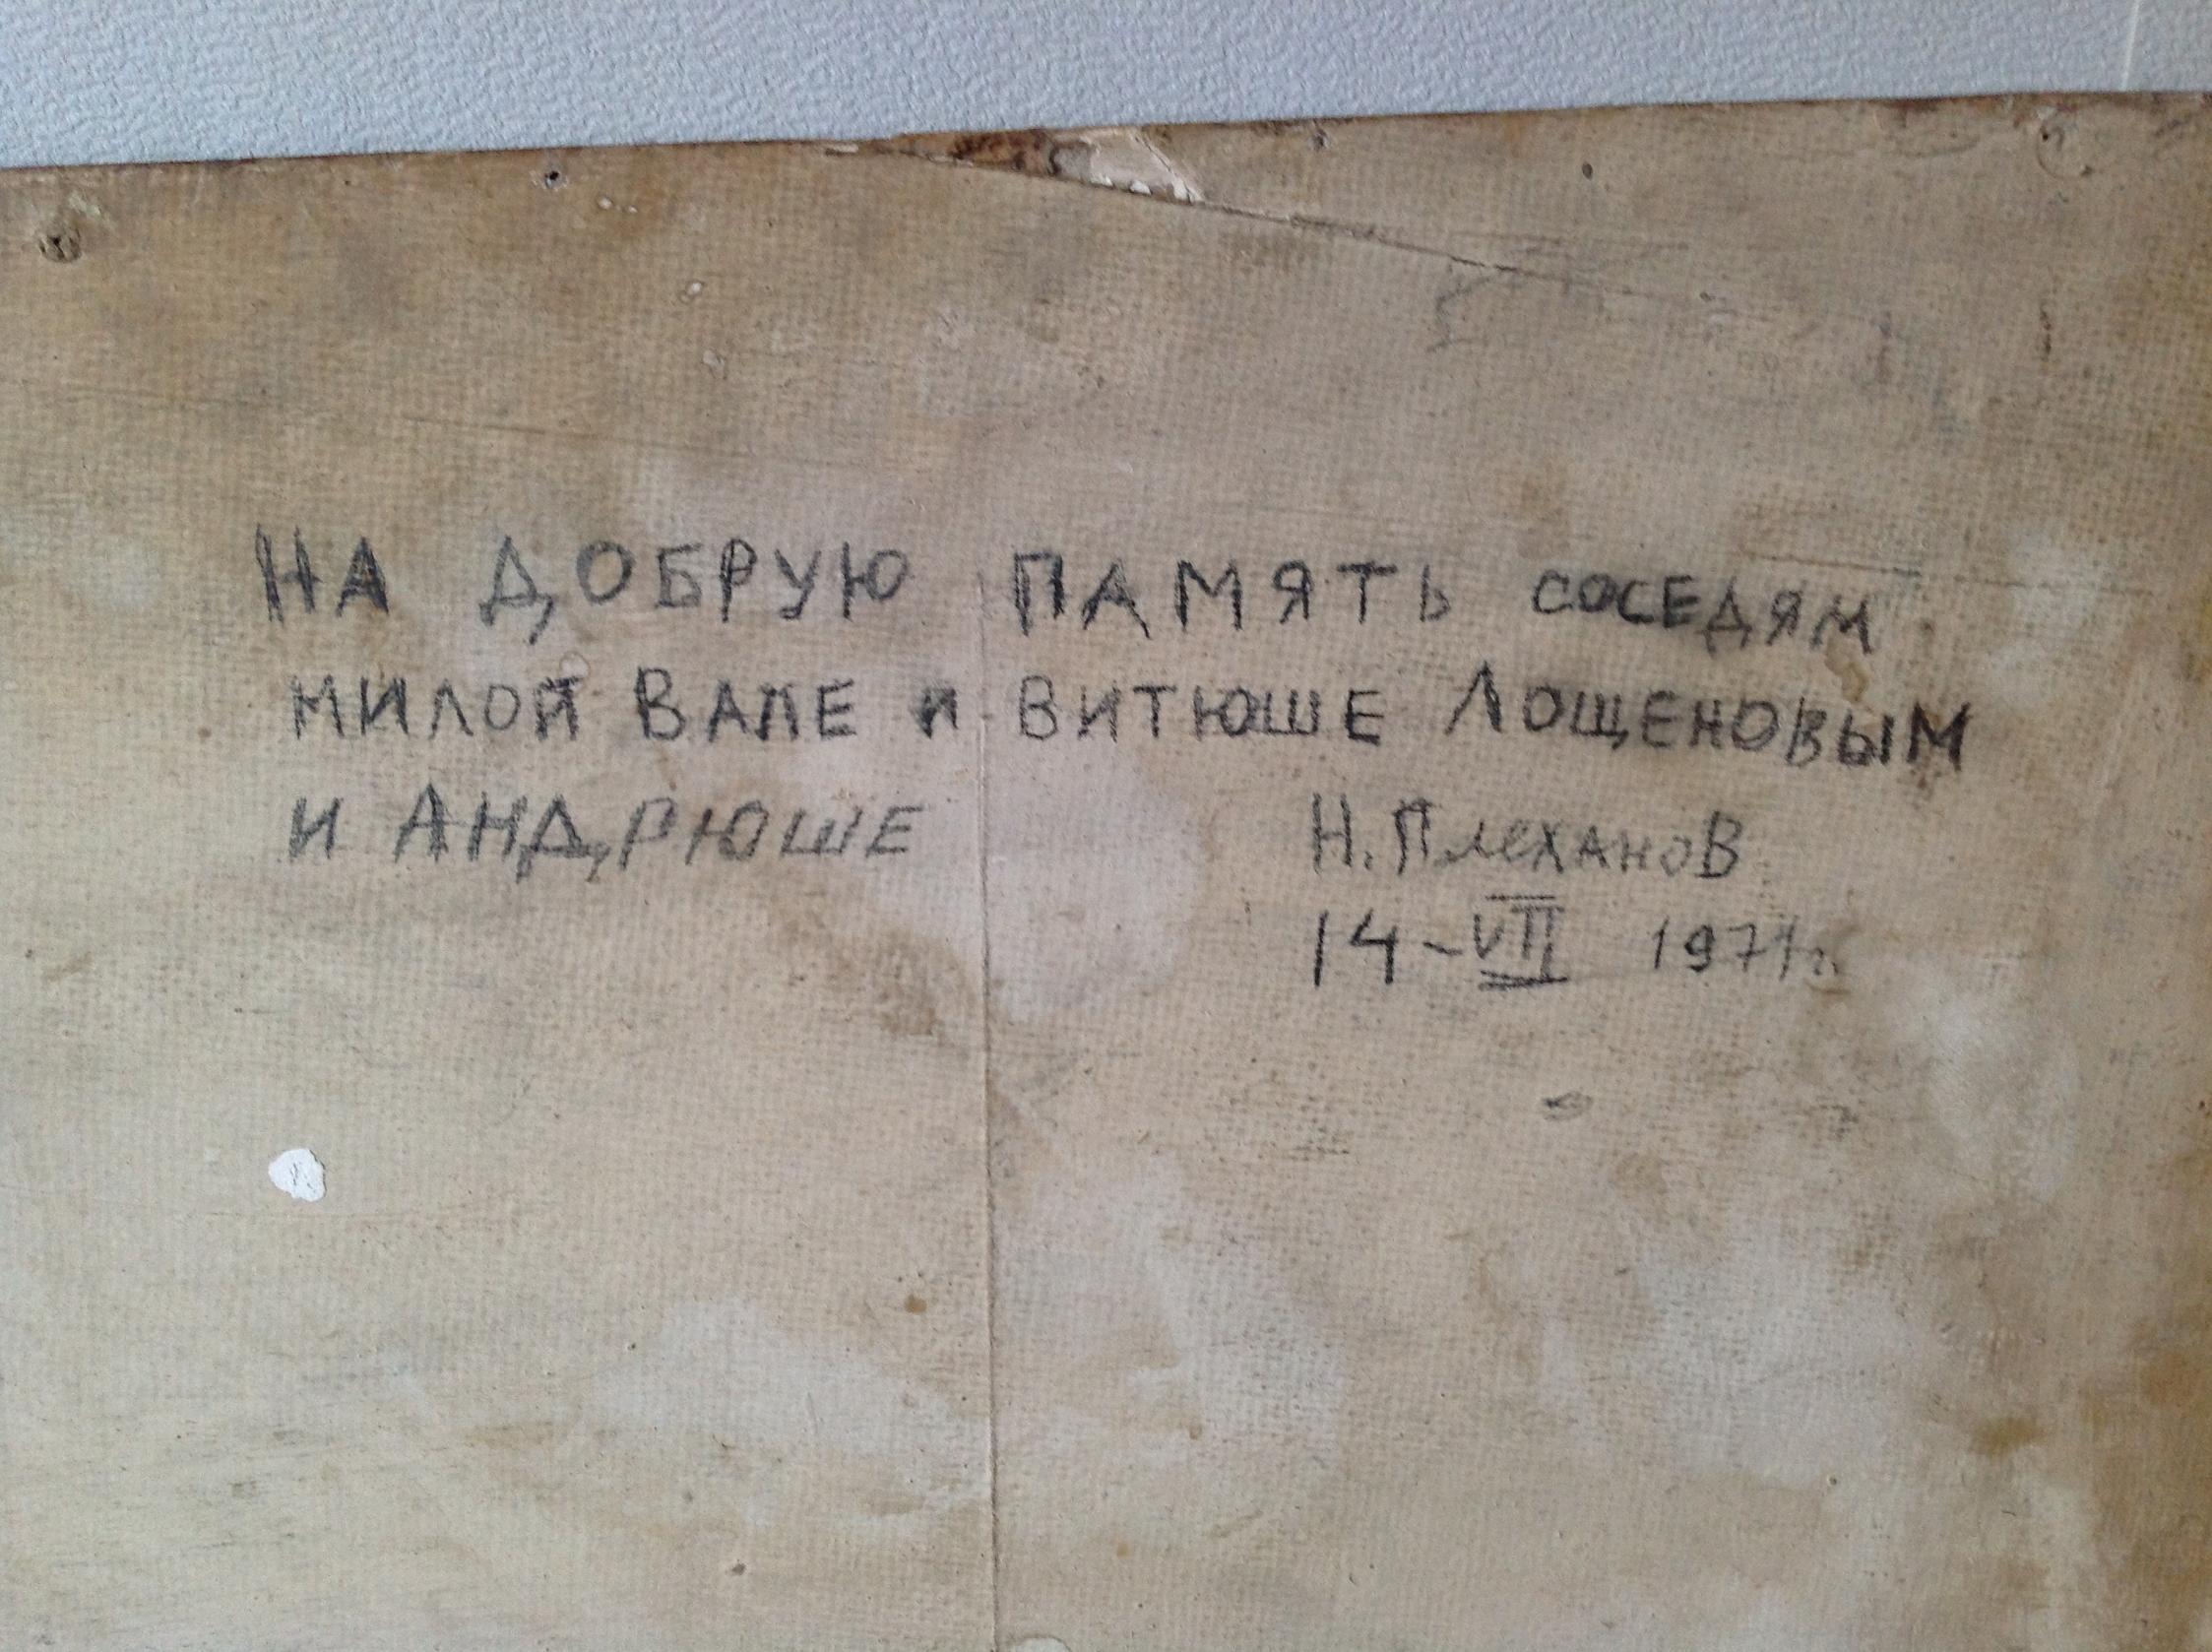 НА ДОБРУЮ ПАМЯТЬ СОСЕДЯМ
МИЛОЙ ВАЛЕ И ВИТЮШЕ ЛОЩЕНОВЫМ
И АНДРЮШЕ
Н. Плеханов
14-VII 1971г.